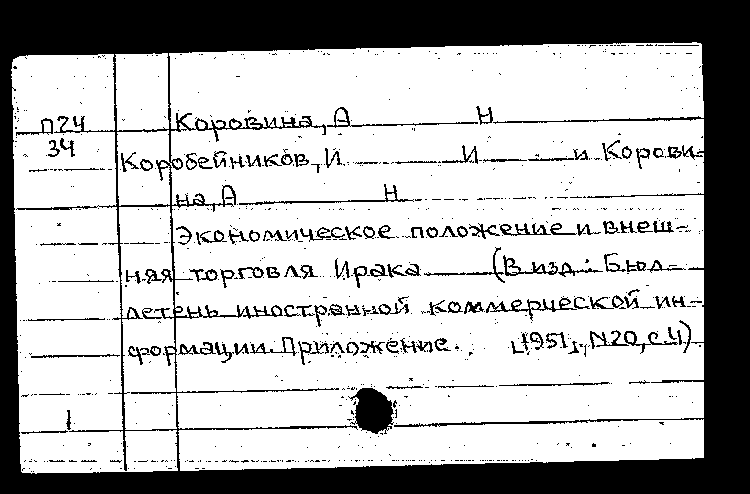 П24 Коровина, А Н
34 Коробейников, И И и Корови-
на, А Н
Экономическое положение и внеш-
няя торговля Ирака (В изд.: Бюл-
летень иностранной коммерческой ин-
формации. Приложение. [1951], N20, с.4)
1